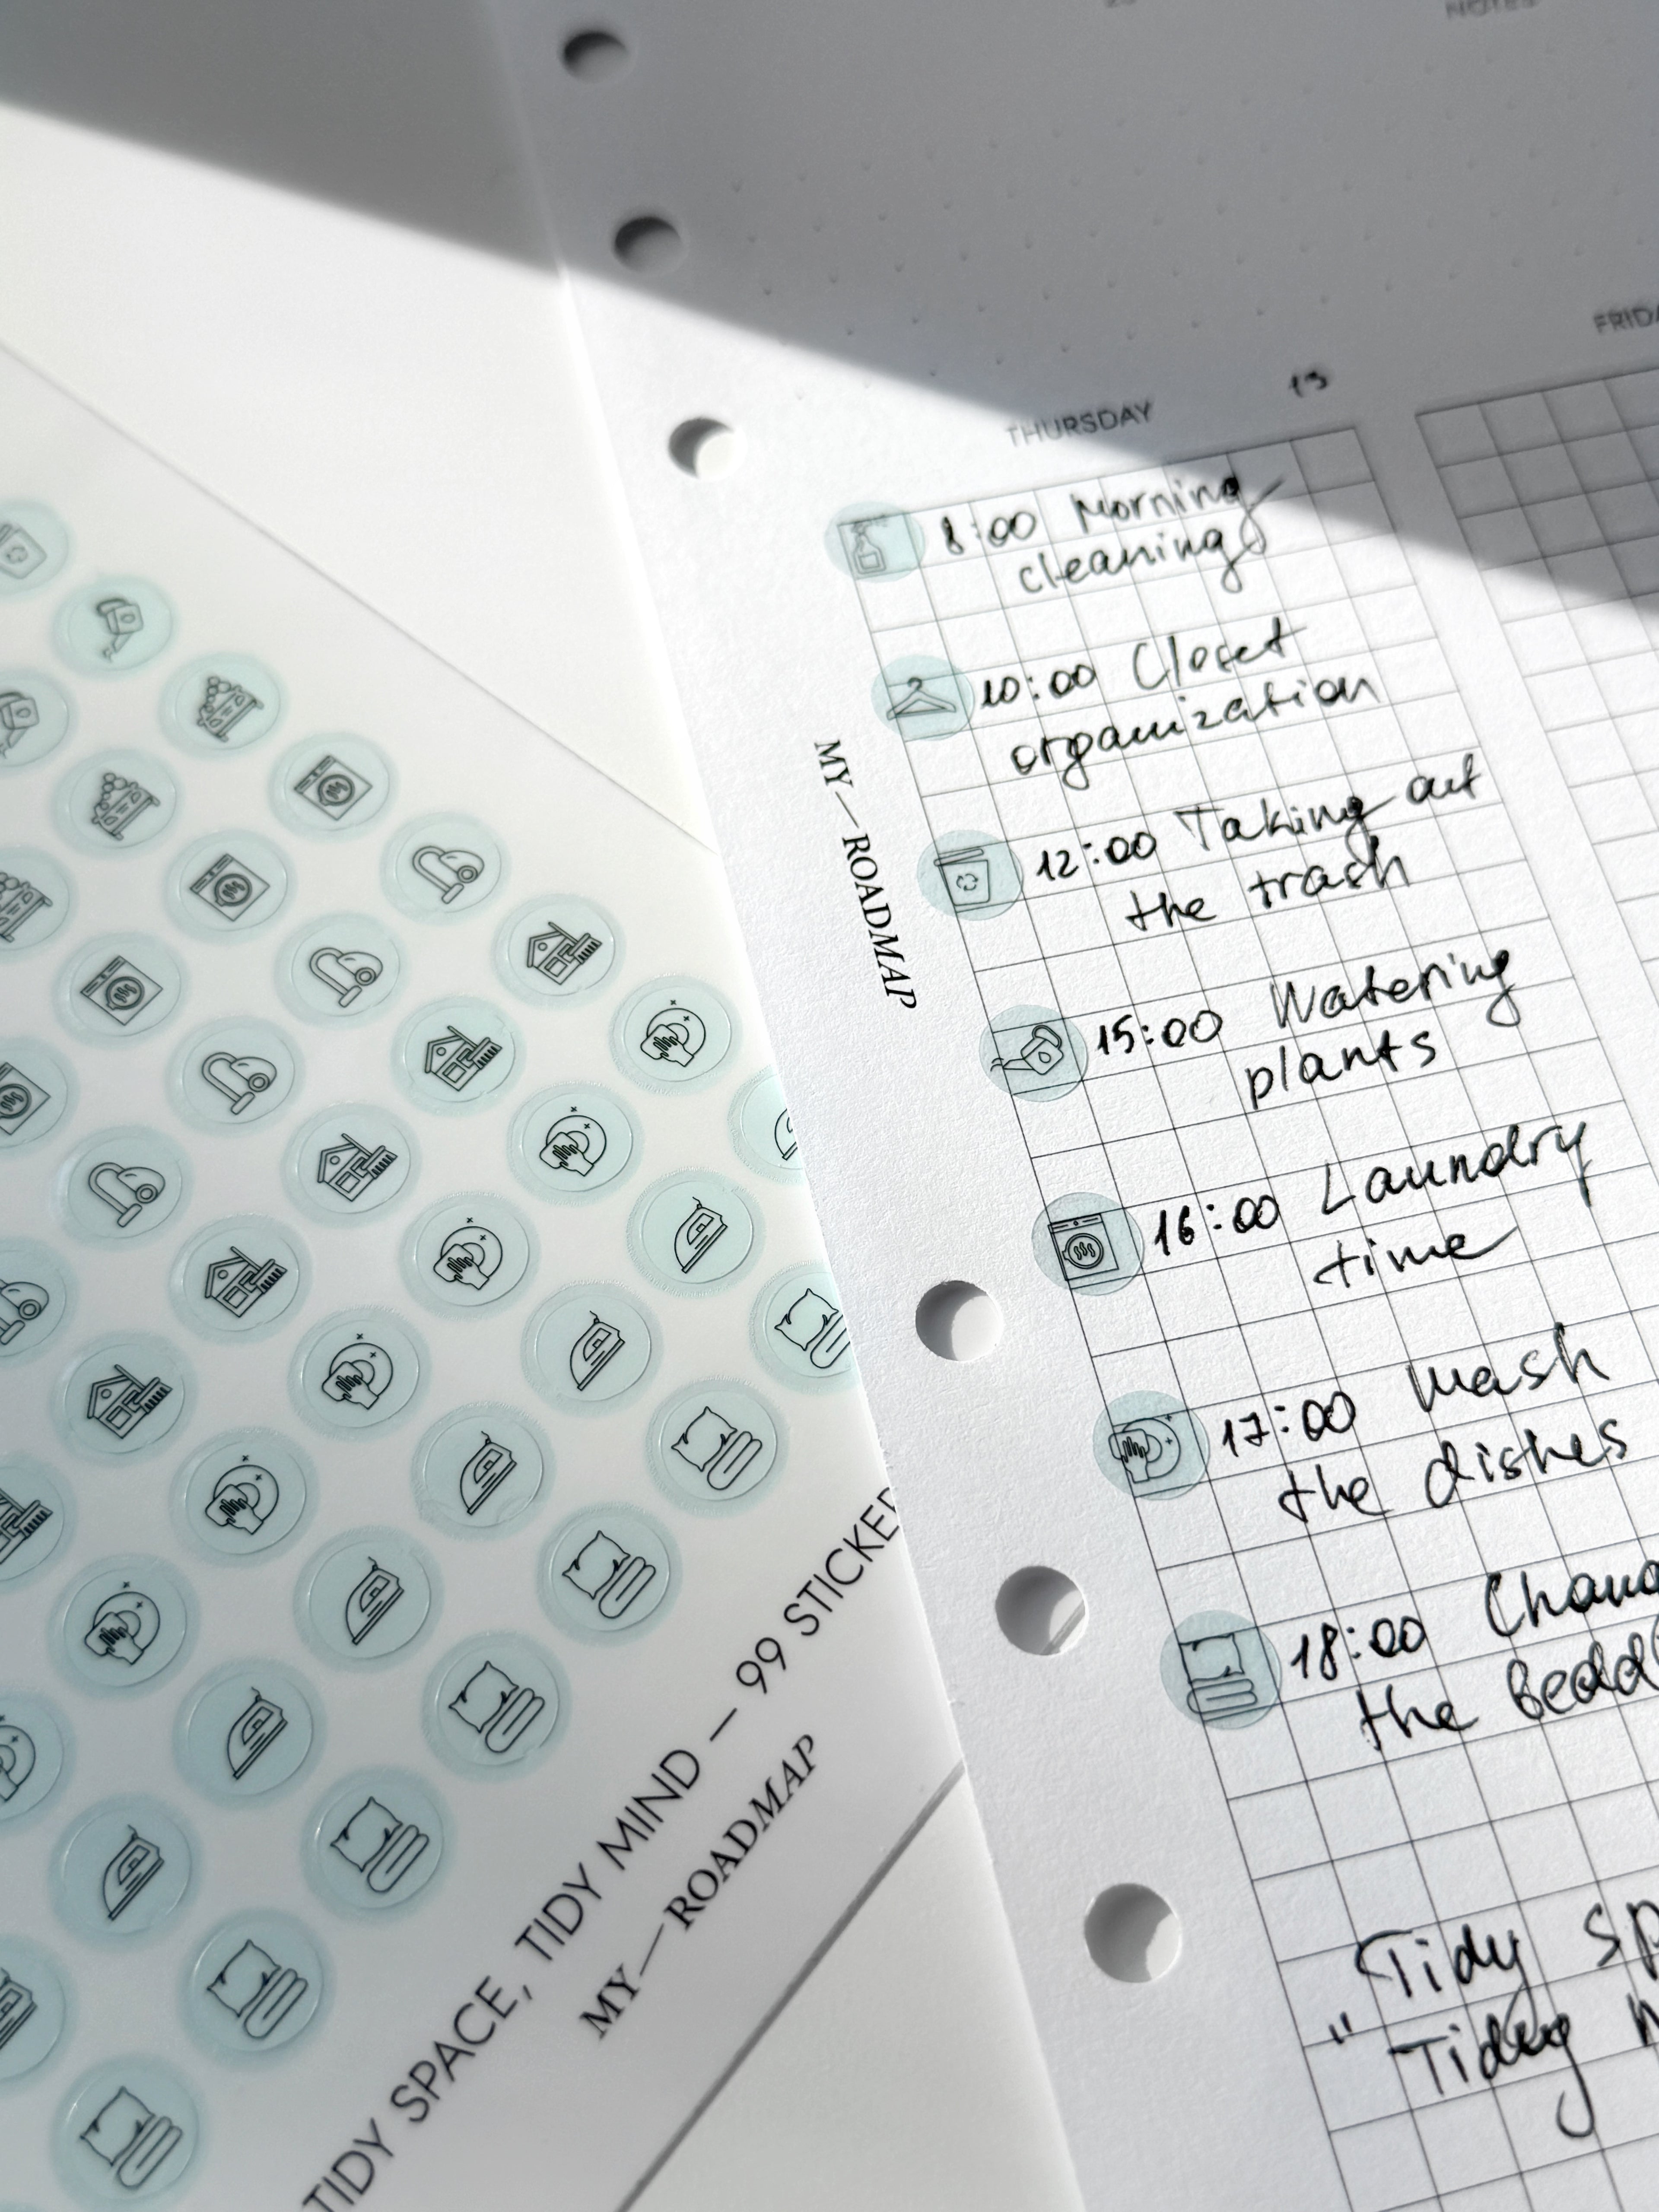 NOTES
THURSDAY
8:00 Morning
cleaning
10:00 Closet
organization
12:00 Taking out
the trash
15:00 Watering
plants
16:00 Laundry
time
17:00 Wash
the dishes
18:00
the
"Tidy
Tidy
MY—ROADMAP
TIDY SPACE, TIDY MIND — 99 STICKER
MY—ROADMAP